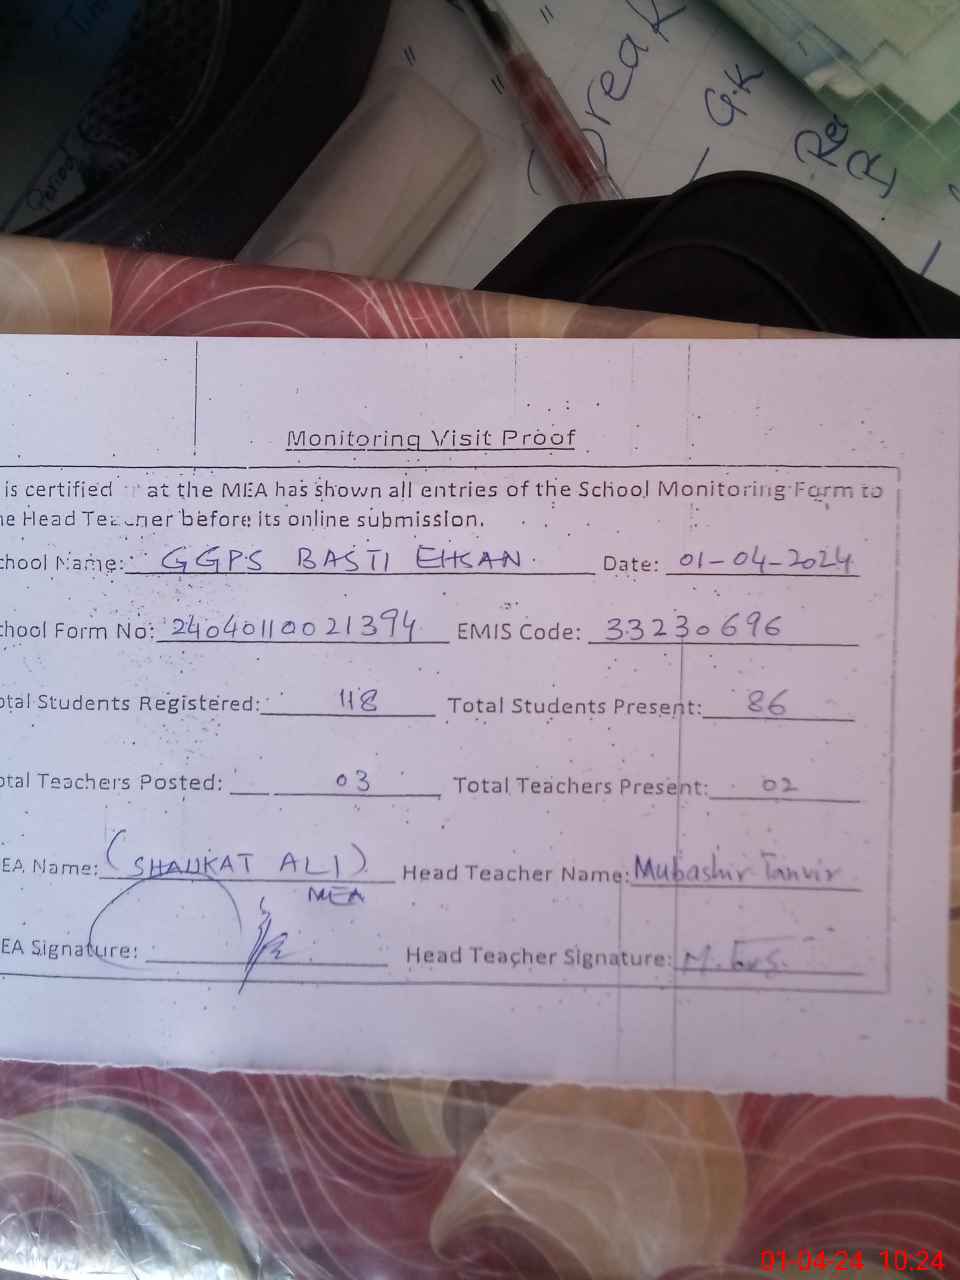 Break
G.K
Period
Monitoring Visit Proof
is certified at the MEA has shown all entries of the School Monitoring Form to
he Head Teacher before its online submission.
chool Name: GGPS BASTI EHSAN Date: 01-04-2024
chool Form No: 24040110021394 EMIS Code: 33230696
otal Students Registered: 118 Total Students Present: 86
otal Teachers Posted: 03 Total Teachers Present: 02
EA Name: (SHAUKAT ALI) Head Teacher Name: Mubashir Tanvir
MEA
EA Signature: Head Teacher Signature:
01-04-24 10:24